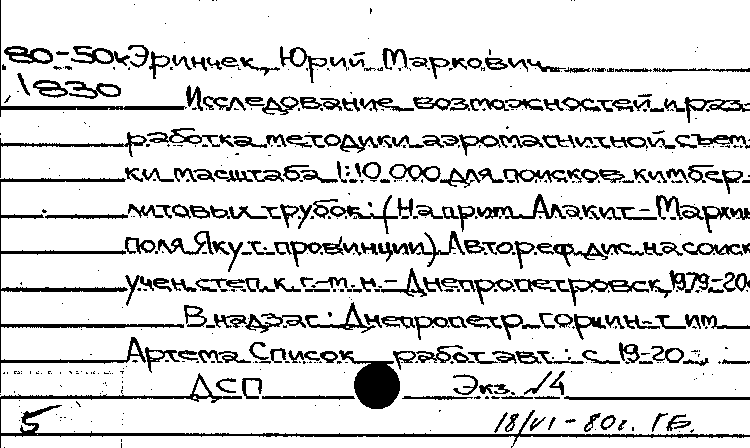 80-50к Эринчек, Юрий Маркович
1830 Исследование возможностей и раз-
работка методики аэромагнитной съем-
ки масштаба 1:10 000 для поисков кимбер-
литовых трубок: (На прим. Алакит-Мархин
поля Якут. провинции). Автореф. дис. на соиск
учен. степ. к. г.-м. н. - Днепропетровск, 1979-20
В надзаг.: Днепропетр. горн. ин-т им.
Артема. Список работ авт.: с. 19-20.
ДСП Экз. №4
5 18/VI-80г. ГБ.